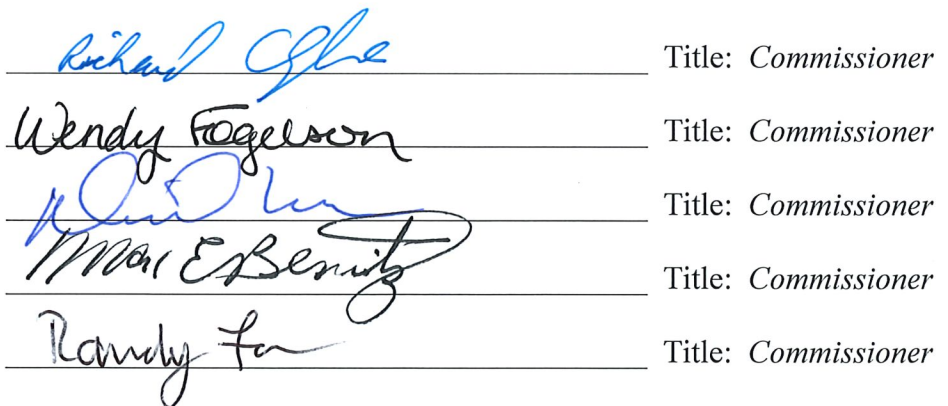 Richard Title: Commissioner
Wendy Fogelson Title: Commissioner
Title: Commissioner
Marc E Benitz Title: Commissioner
Randy Title: Commissioner